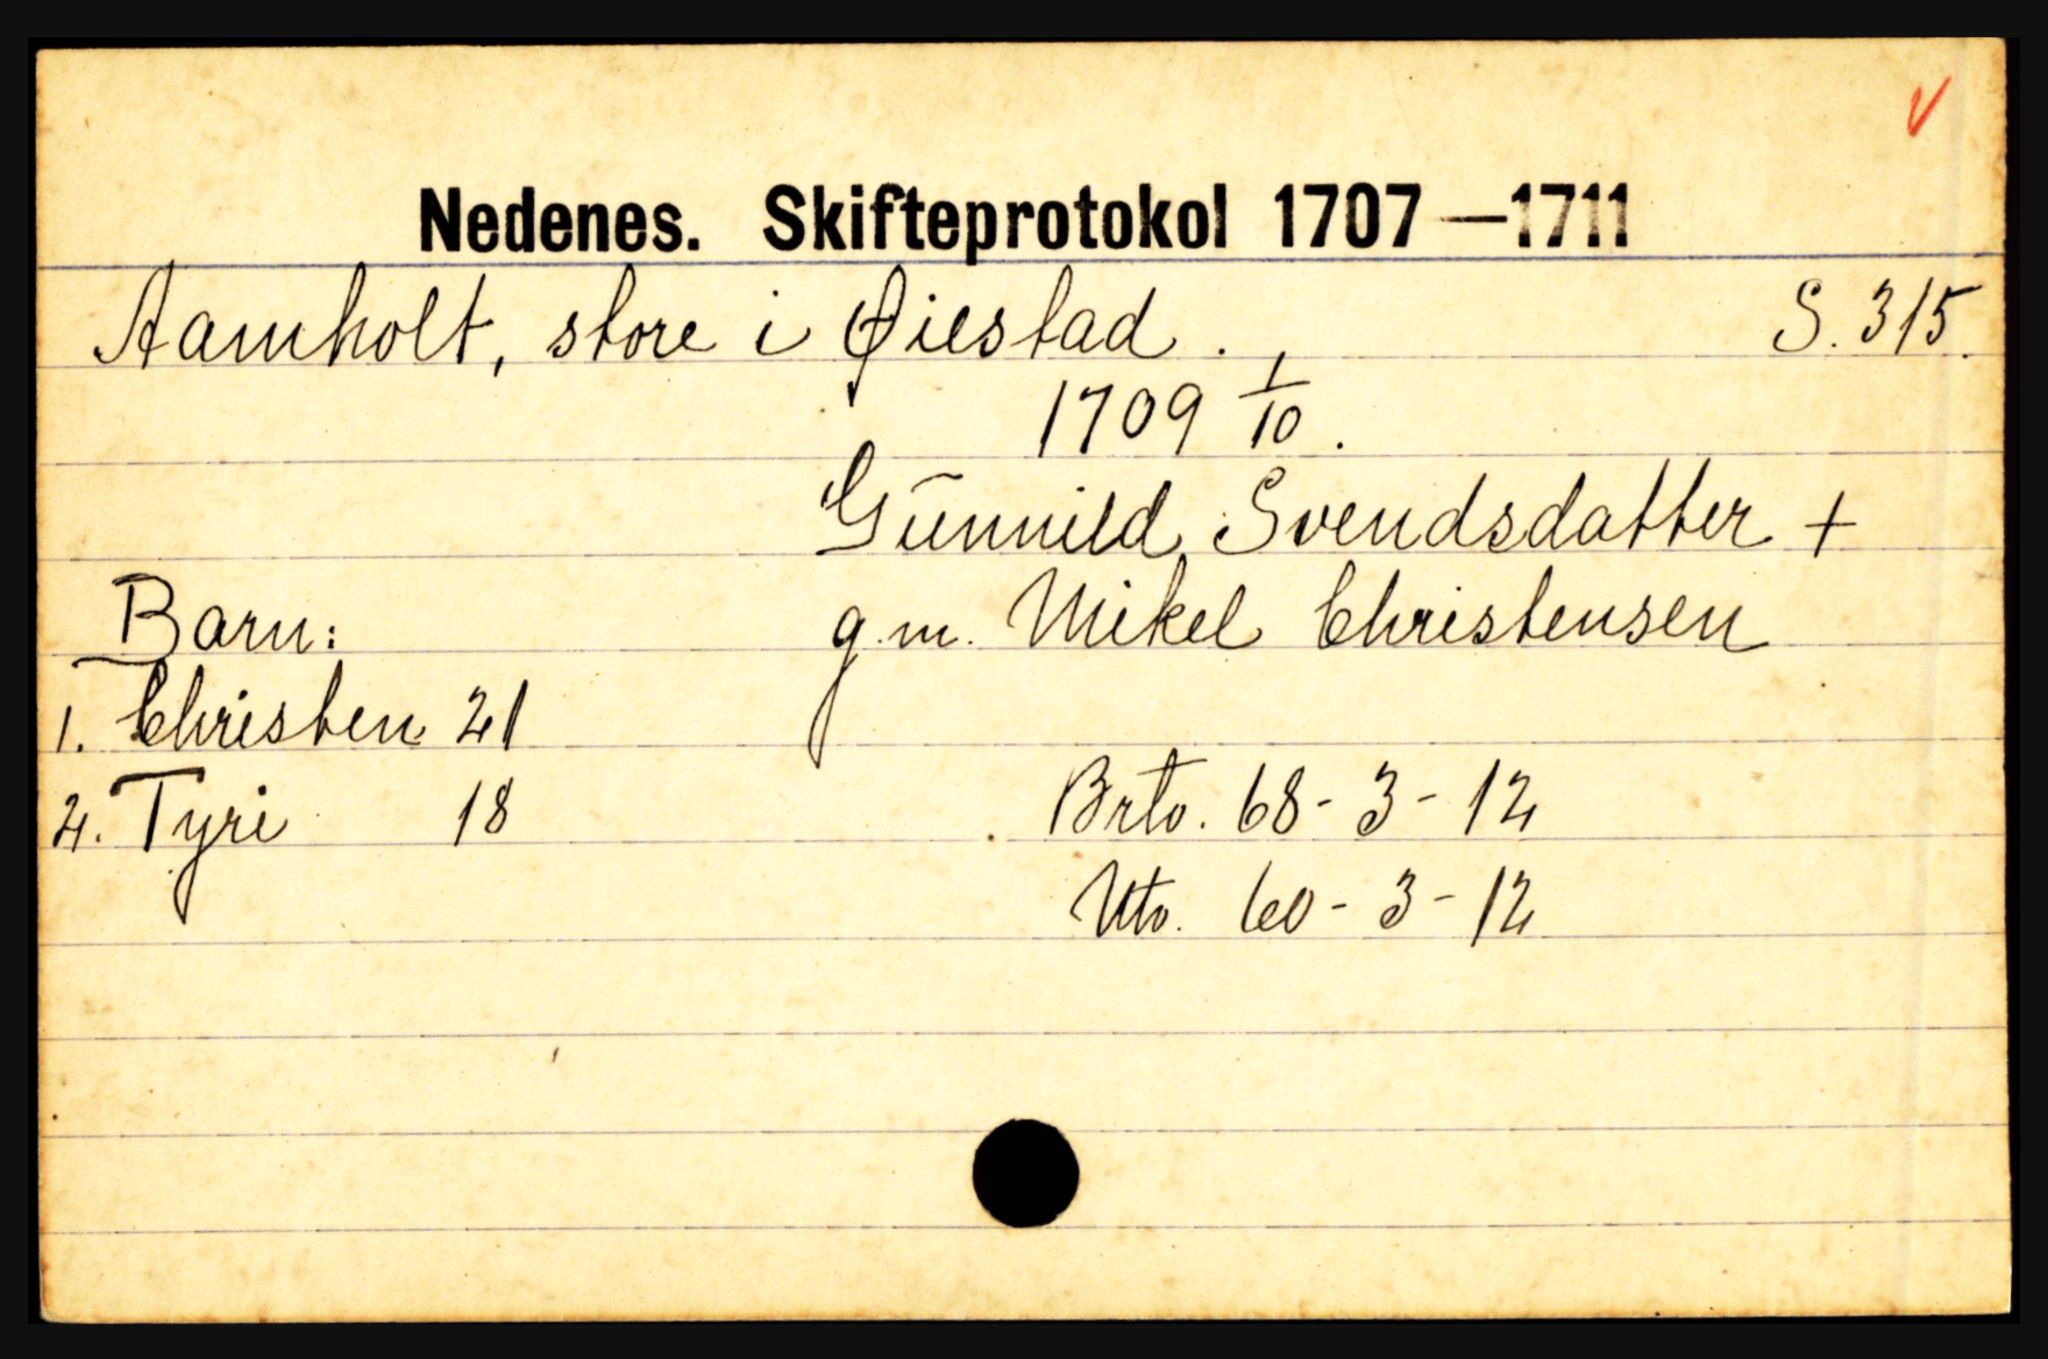 Nedenes. Skifteprotokol 1707—1711
Aamholt, store i Øiestad. S. 315.
1709 1/10.
Gunnild Svendsdatter +
Barn: g.m. Mikel Christensen
1. Christen 21
2. Tyri 18 Brto. 68-3-12
Nto. 60-3-12